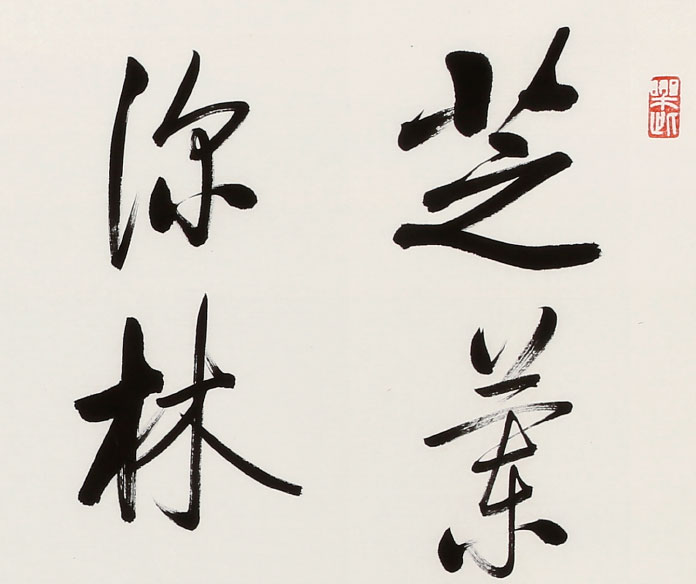 芝蘭
深林